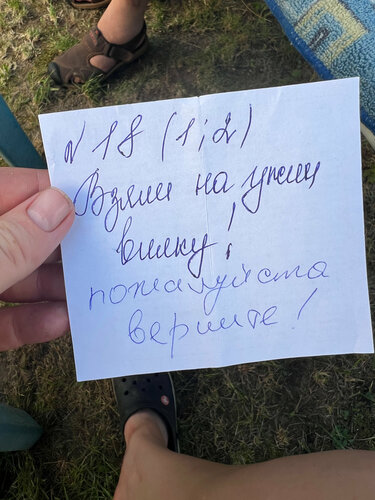 № 18 (1;2)
Взяли на ужин
вилку!
пожалуйста
верните!